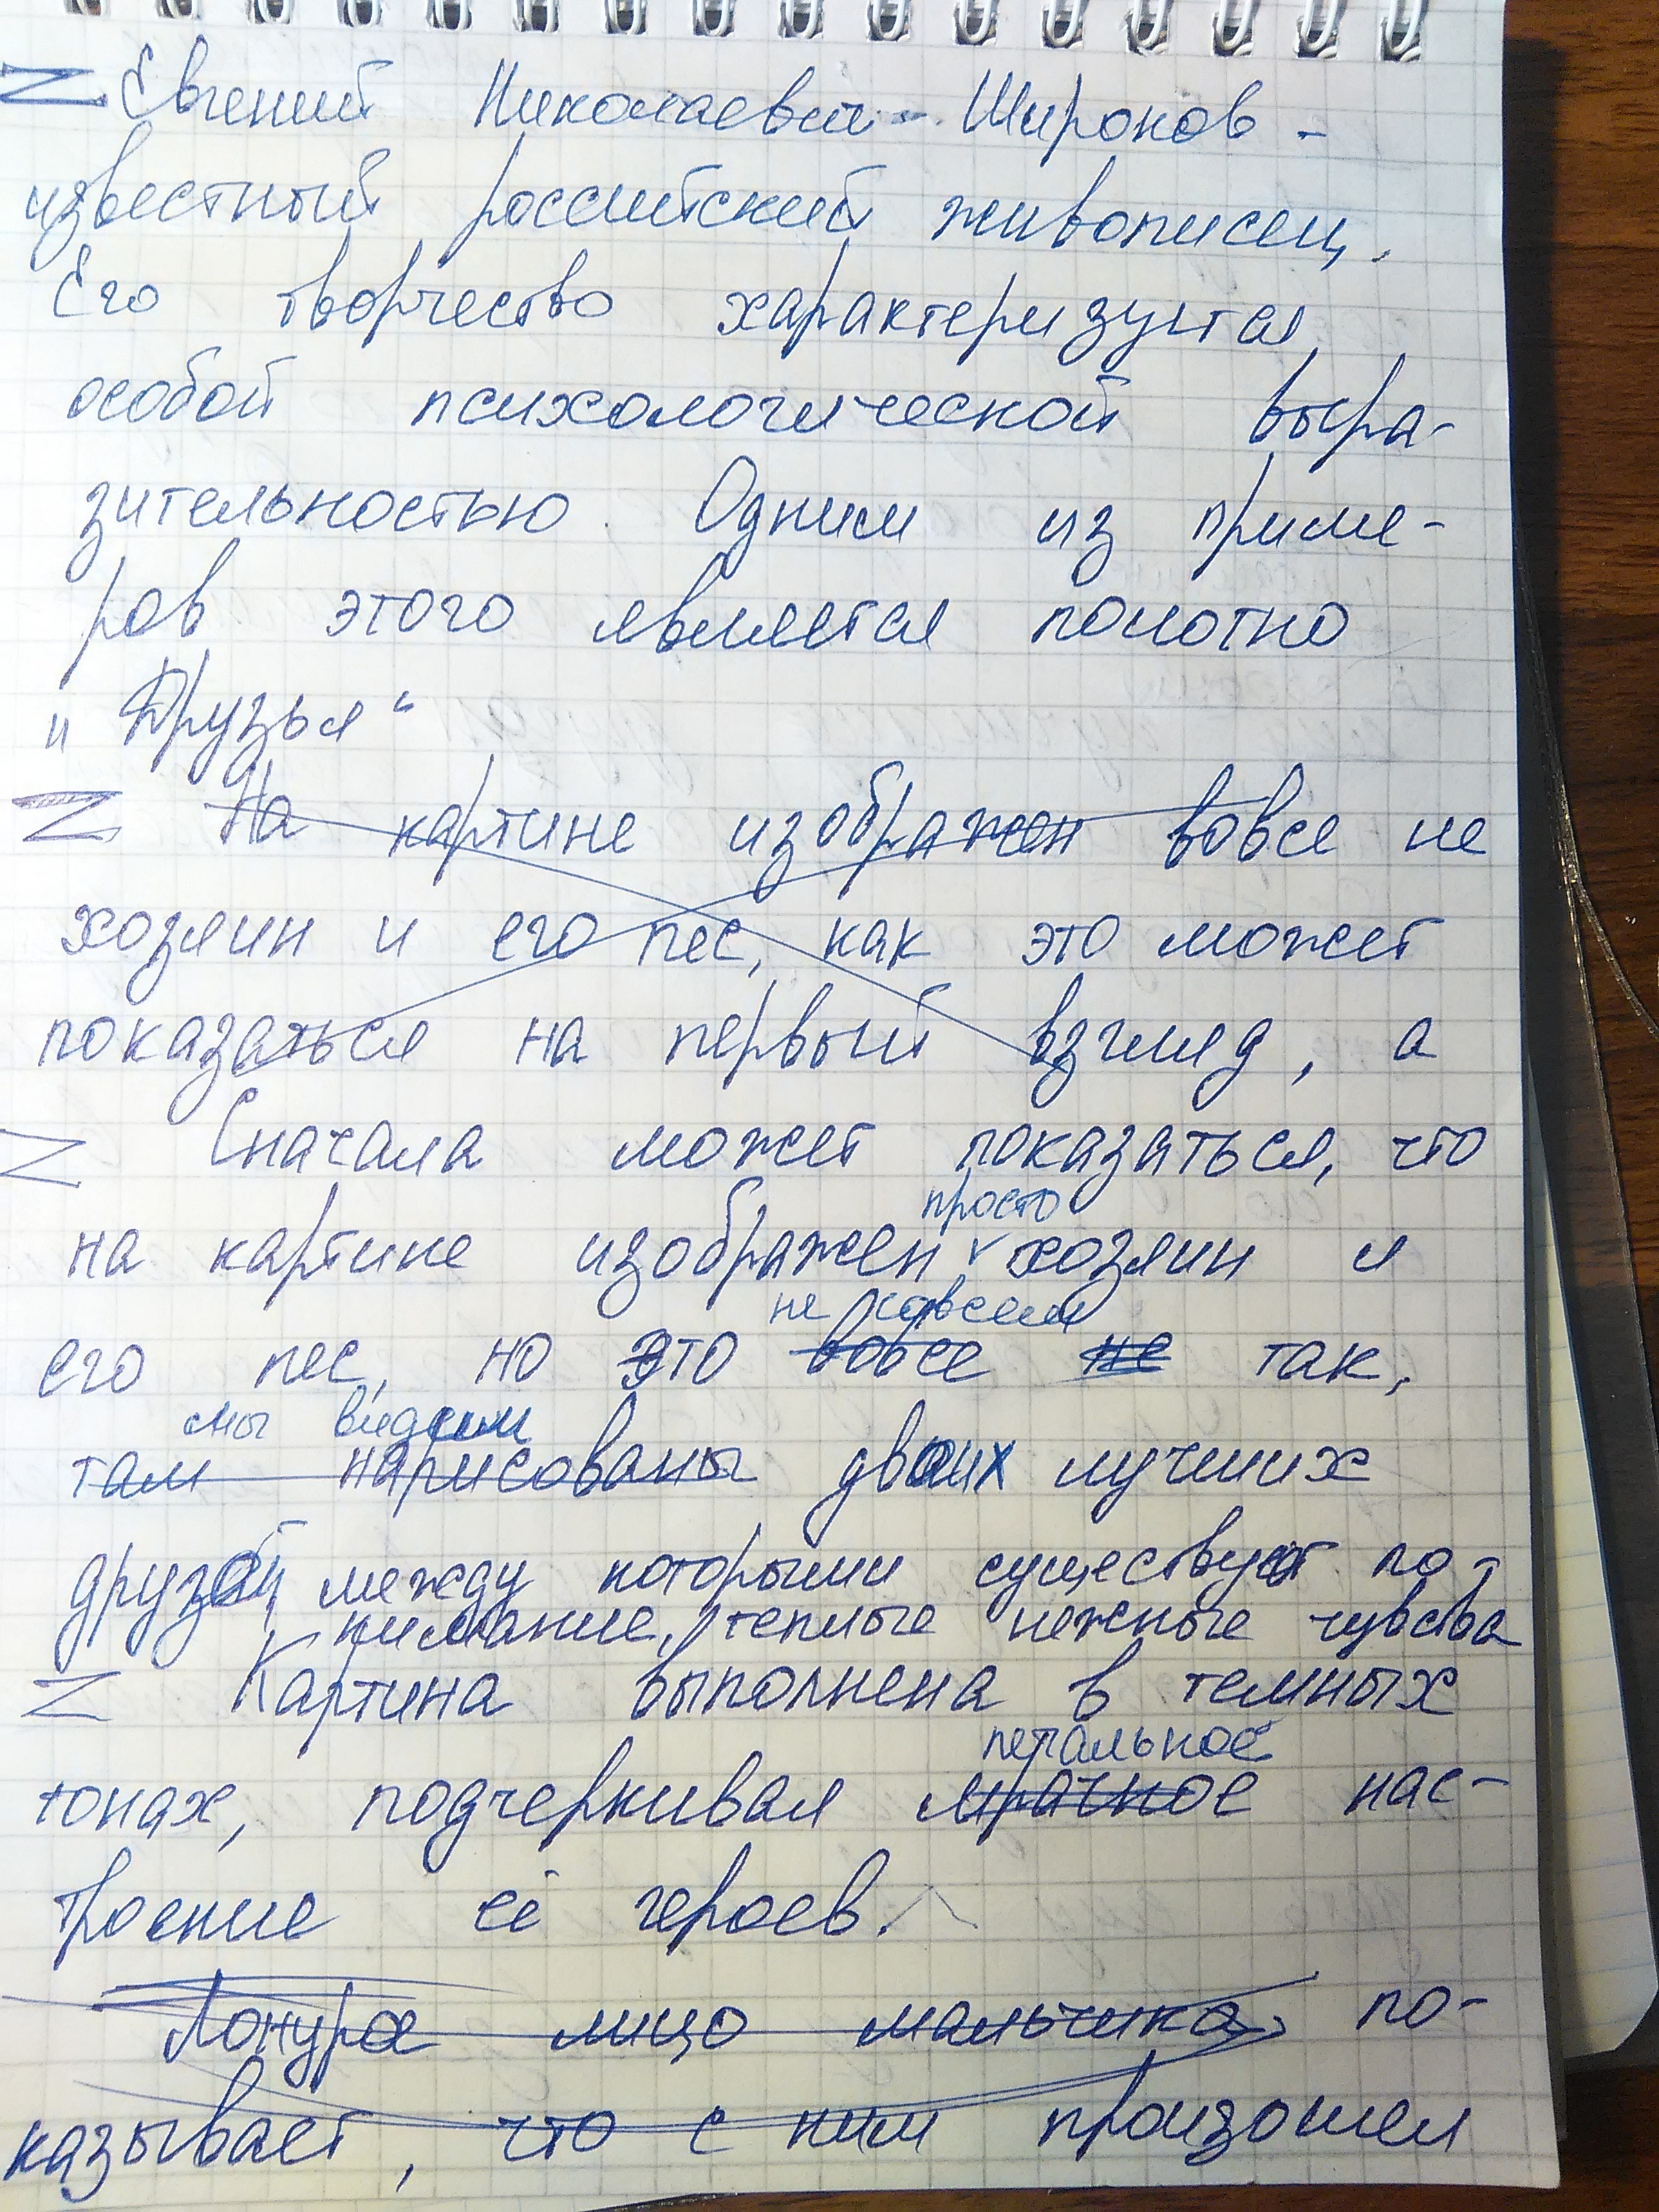 Z Евгений Николаевич Широков -
известный российский живописец.
Его творчество характеризуется
особой психологической выра-
зительностью. Одним из приме-
ров этого является полотно
„Друзья“
Z На картине изображен вовсе не
хозяин и его пес, как это может
показаться на первый взгляд, а
Z Сначала может показаться, что
просто
на картине изображен хозяин и
не совсем
его пес, но это вовсе не так,
мы видим
там нарисованы двоих лучших
друзей, между которыми существует по-
нимание, теплые нежные чувства
Z Картина выполнена в темных
печальное
тонах, подчеркивая мрачное нас-
троение её героев.
Понурое лицо мальчика по-
казывает, что с ним произошел